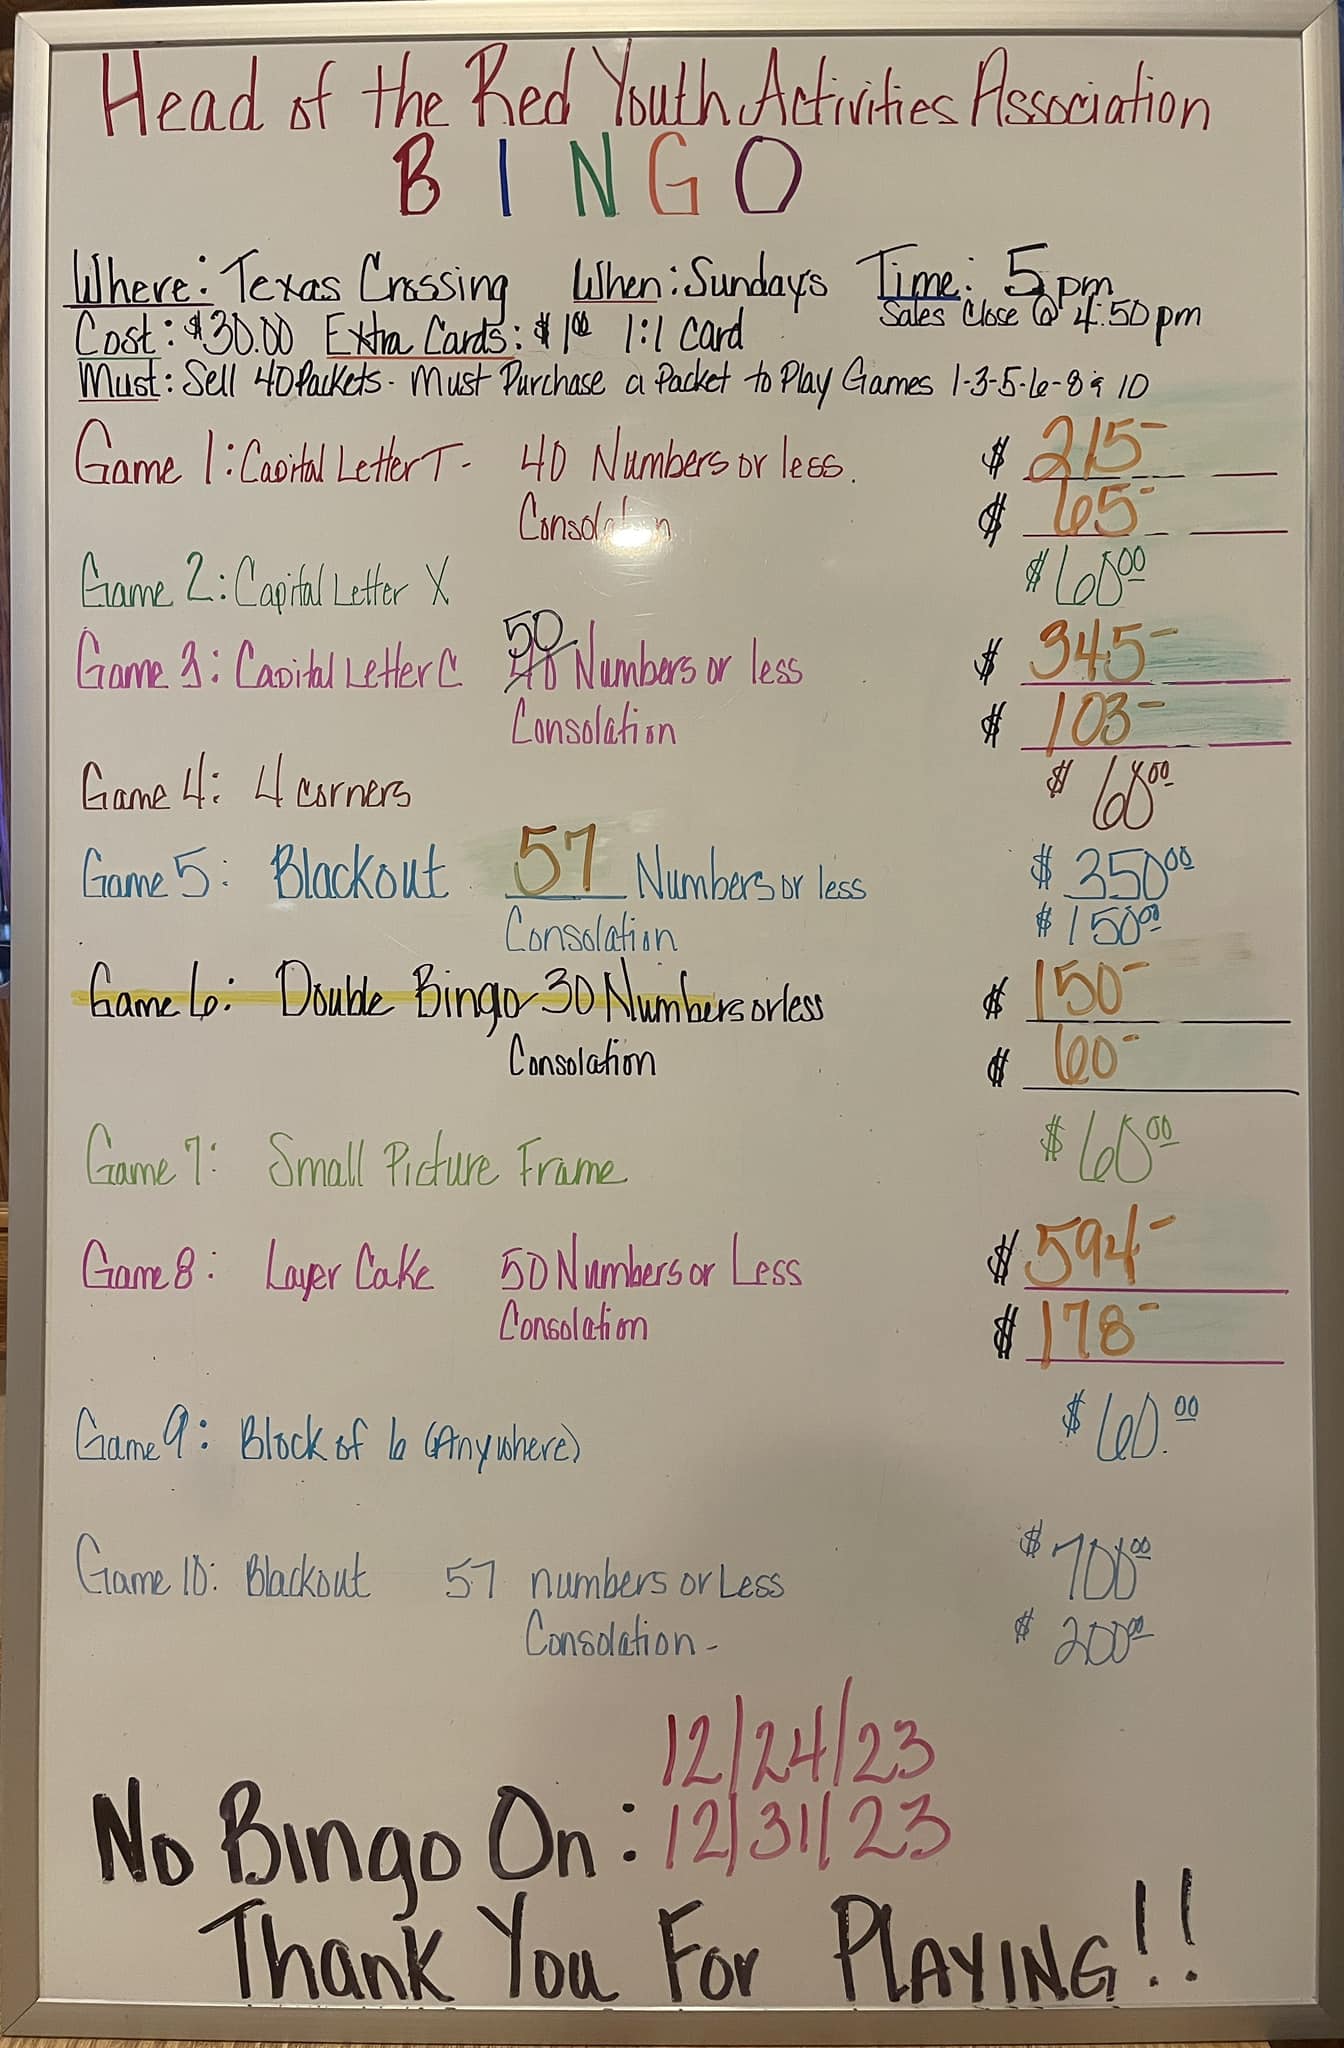 Head of the Red Youth Activities Association
BINGO
Where: Texas Crossing When: Sundays Time: 5pm
Sales Close @ 4:50pm
Cost: $30.00 Extra Cards: $1.00 1:1 card
Must: Sell 40 Packets - Must Purchase a Packet to Play Games 1-3-5-6-8 & 10
Game 1: Capital Letter T - 40 Numbers or less. $ 215-
Consolation $ 65-
Game 2: Capital Letter X $60.00
Game 3: Capital Letter C 50 40 Numbers or less $ 345-
Consolation $ 103-
Game 4: 4 corners $ 60.00
Game 5: Blackout 57 Numbers or less $ 350.00
Consolation $ 150.00
Game 6: Double Bingo - 30 Numbers or less $ 150-
Consolation $ 60-
Game 7: Small Picture Frame $60.00
Game 8: Layer Cake 50 Numbers or Less $ 594-
Consolation $ 178-
Game 9: Block of 6 (Anywhere) $60.00
Game 10: Blackout 57 numbers or Less $700.00
Consolation - $ 200.00
12/24/23
No Bingo On: 12/31/23
Thank You For PLAYING!!